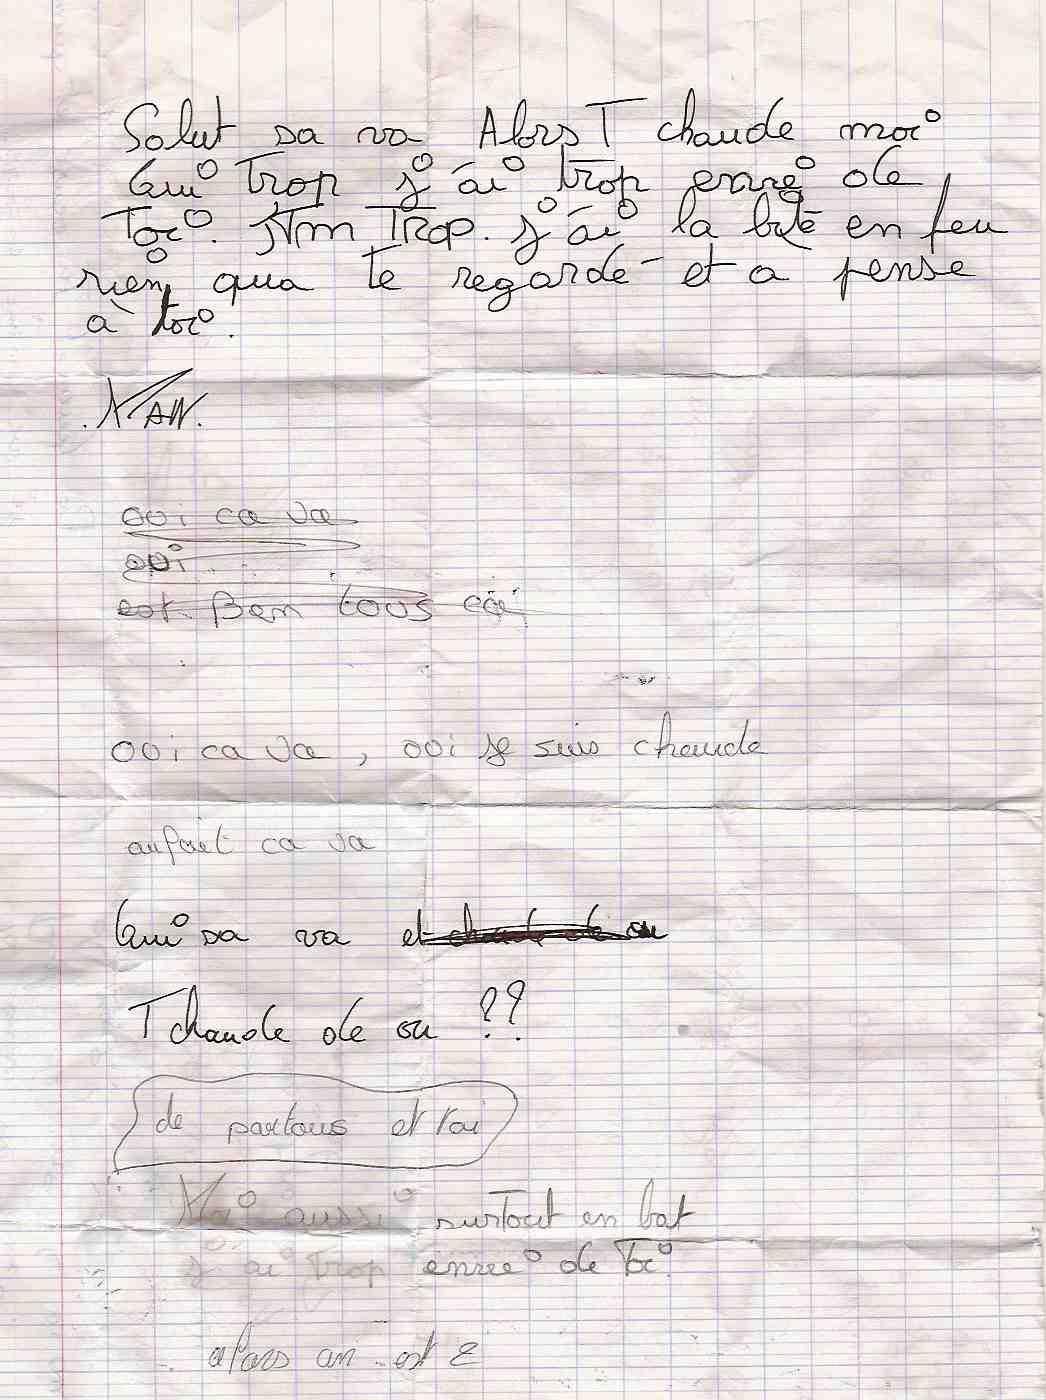 Salut sa va Alors T chaude moi
Oui Trop j'ai trop envie de
Toi. JTm TROP. j'ai la bite en feu
rien qua te regardé et a pense
à toi.
NAW.
ooi ca va
ooi
est Ben tous
ooi ca va, ooi je suis chaude
aufait ca va
Oui sa va et chaude de ou
T chaude de ou ??
de partous et toi
Moi aussi surtout en bat
j'ai trop envie de Toi
alors on est 2